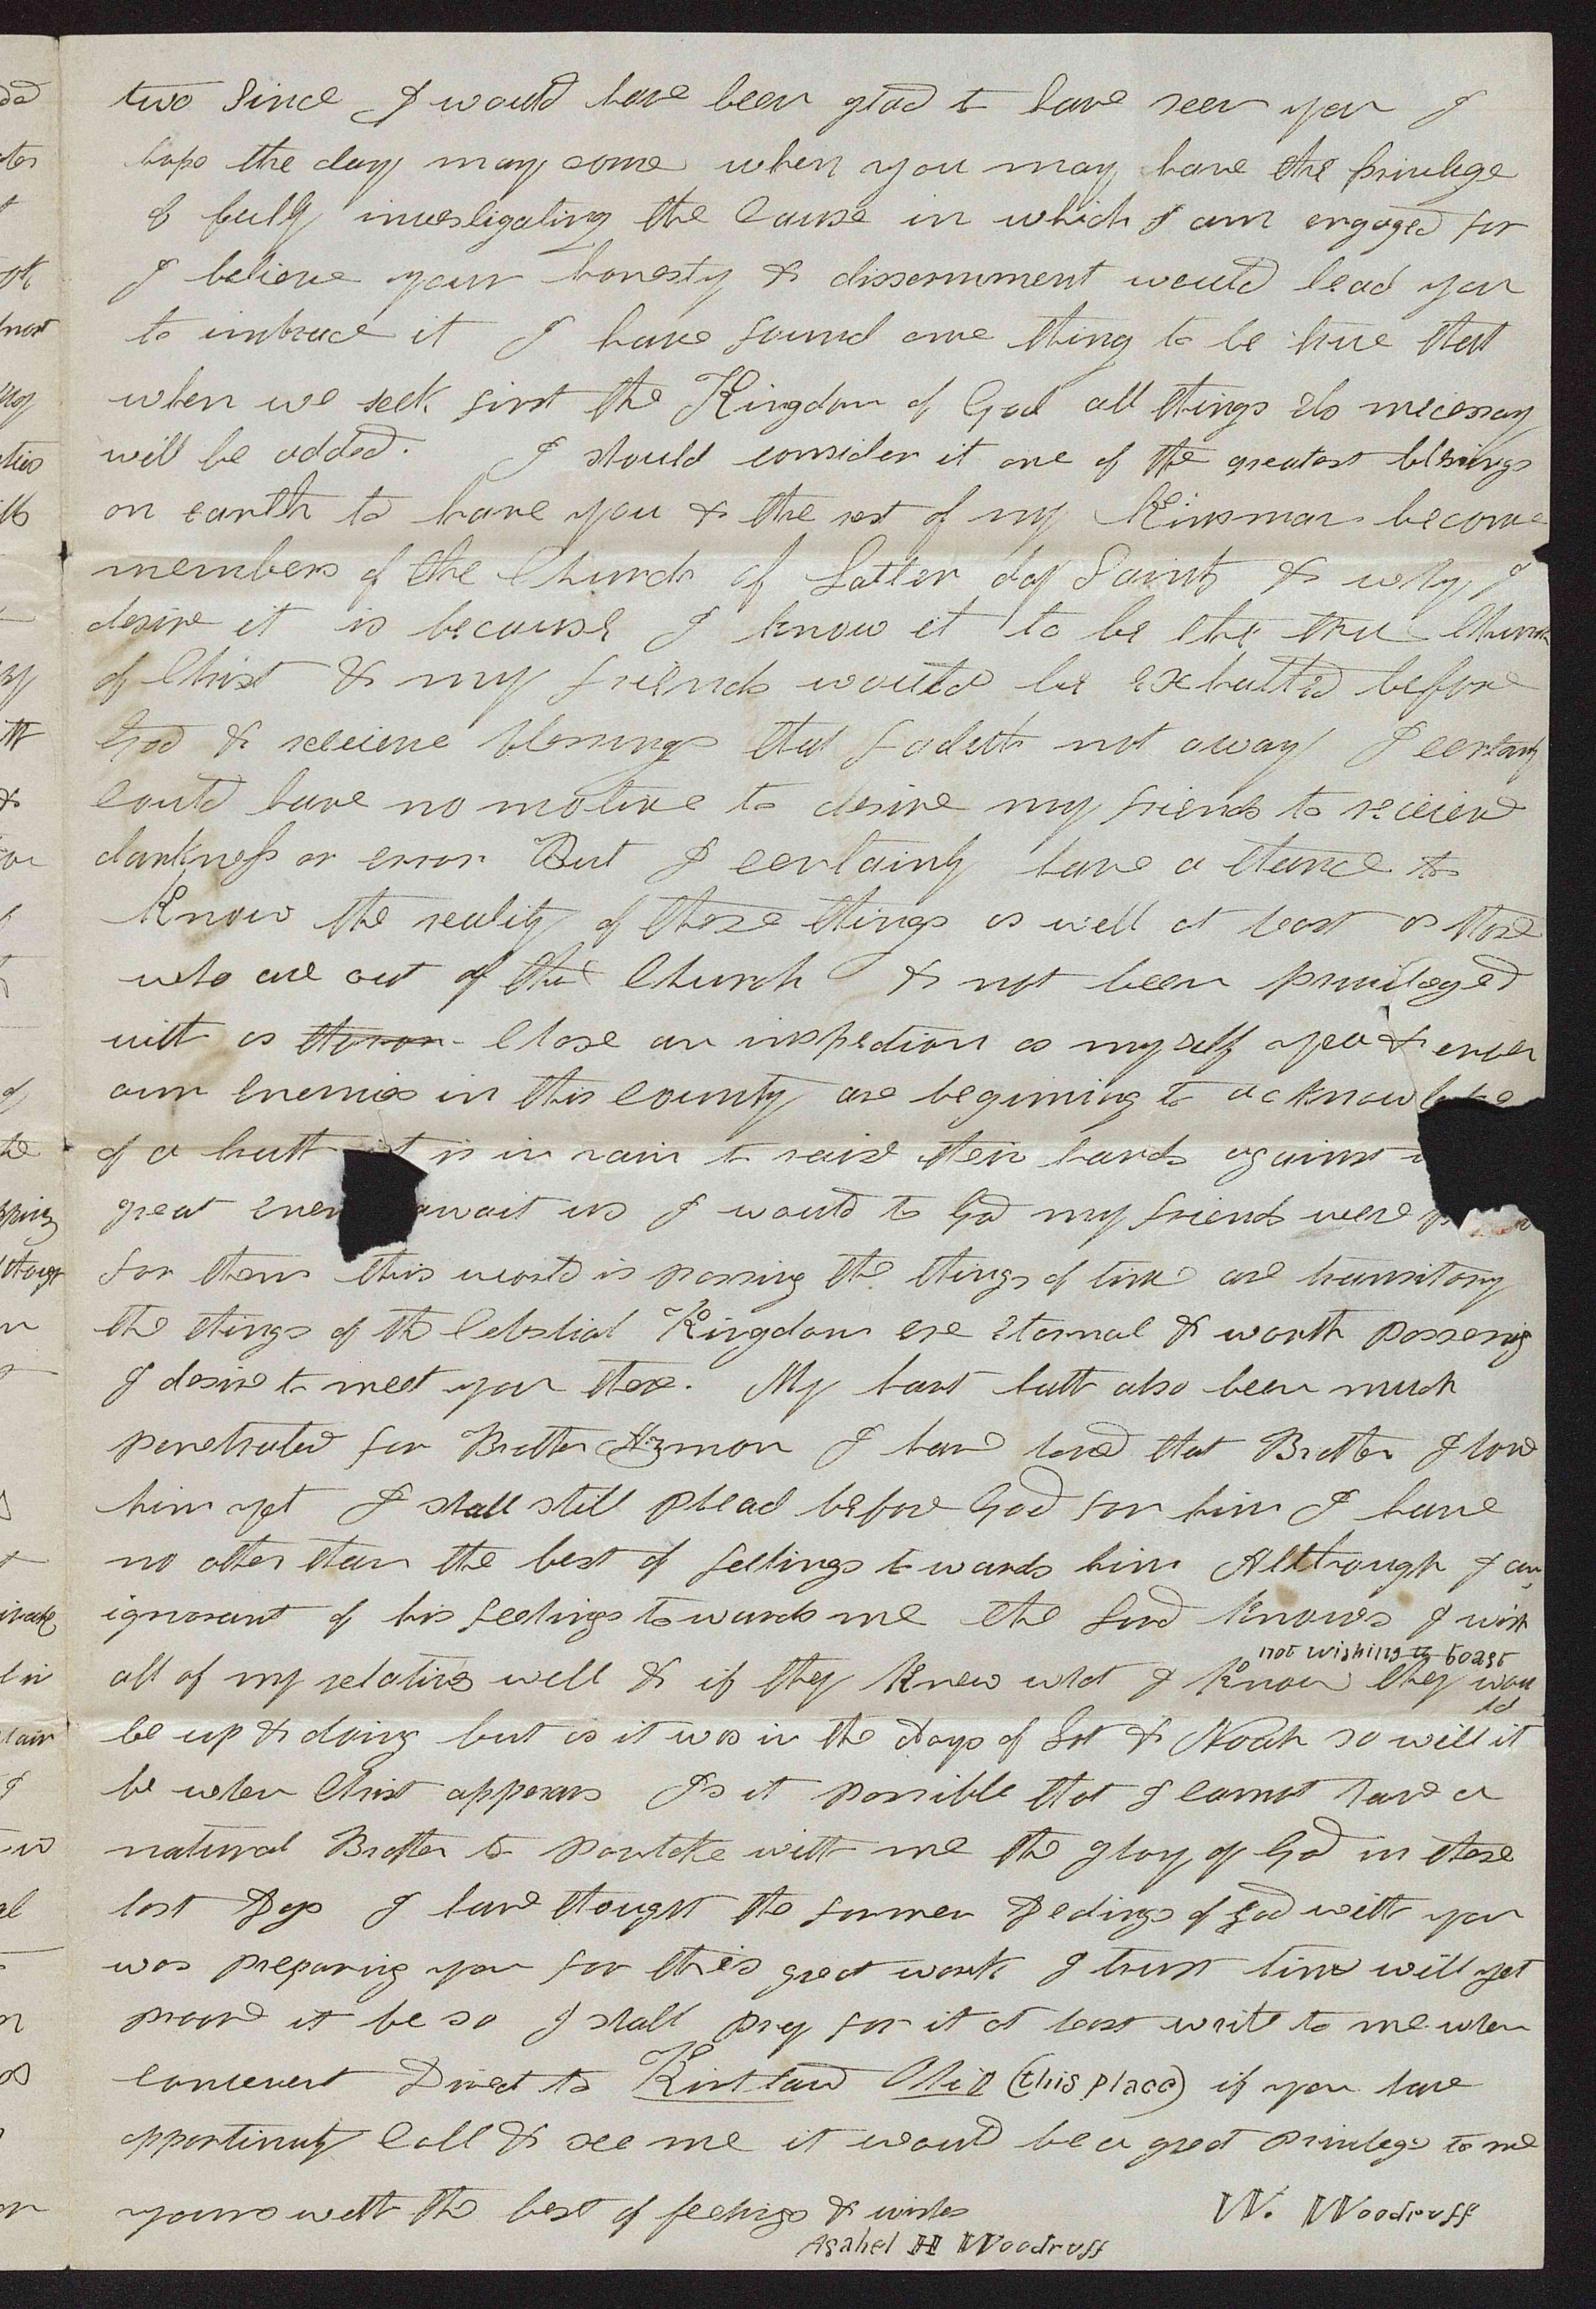 two Since I would have been glad to have seen you I
hope the day may come when you may have the privilege
of fully investigating the Cause in which I am engaged for
I believe your honesty & dissernment would lead you
to imbrace it I have found one thing to be true that
when we seek first the Kingdom of God all things els necessary
will be added. I should consider it one of the greatest blessings
on earth to have you & the rest of my Kinsman become
members of the Church of Latter day Saints & why I
desire it is because I know it to be the true Church
of Christ & my friends would be exhalted before
God & receieve blessings that fadeth not away I certainly
could have no motive to desire my friends to receieve
darkness or error But I certainly have a chance to
Know the reality of these things as well at least as those
who are out of the Church & not been privileged
with as thoron close an inspection as myself yea & even
our enemies in this county are begining to acknowledge
of a truth it is in vain to raise their hands against
great await us I would to God my friends were
for them this world is passing the things of time are transitory
the things of the Celestial Kingdom are eternal & worth possessing
I desire to meet you there. My heart hath also been much
penetrated for Brother Azmon I have loved that Brother I love
him yet I shall still plead before God for him I have
no other than the best of feelings towards him Allthough I am
ignorant of his feelings towards me the Lord knows I wish
not wishing to boast
all of my relatives well & if they knew what I know they would
be up & doing but as it was in the days of Lot & Noah so will it
be when Christ appears Is it possible that I cannot have a
natural Brother to partake with me the glory of God in these
last Days I have thought the former Dealings of God with you
was prepairing you for this great work I trust time will yet
proove it be so I shall pray for it at least write to me when
convenent Direct to Kirtland Ohio (this place) if you have
opportunity Call & see me it would be a great privilege to me
yours with the best of feelings & wishes W. Woodruff
Asahel H Woodruff